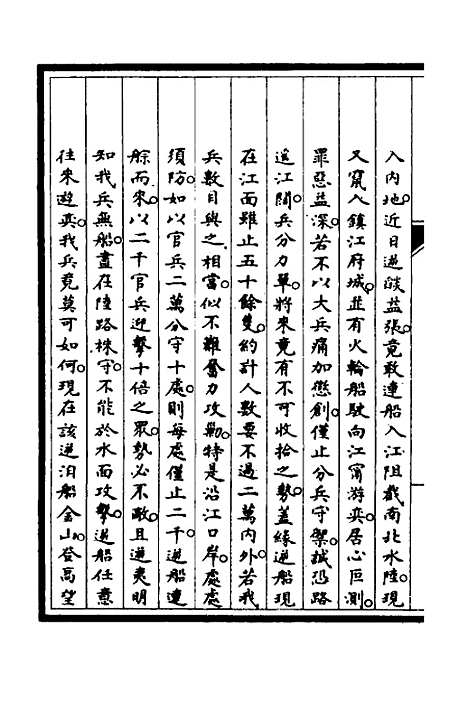 入內地。近日逆燄益張。竟敢連船入江阻截南北水陸。現
又竄入鎮江府城。並有火輪船駛向江甯游奕。居心叵測。
罪惡益深。若不以大兵痛加懲創。僅止分兵守禦。誠恐路
遙江闊。兵分力單。將來竟有不可收拾之勢。蓋緣逆船現
在江面雖止五十餘隻。約計人數要不過二萬內外。若我
兵數目與之相當。似不難奮力攻勦。特是沿江口岸。處處
須防。如以官兵二萬分守十處。則每處僅止二千。逆船連
䑸而來。以二千官兵迎擊十倍之眾。勢必不敵。且逆夷明
知我兵無船。盡在陸路株守。不能於水面攻擊。逆船任意
往來遊奕。我兵竟莫可如何。現在該逆泊船金山。登高望